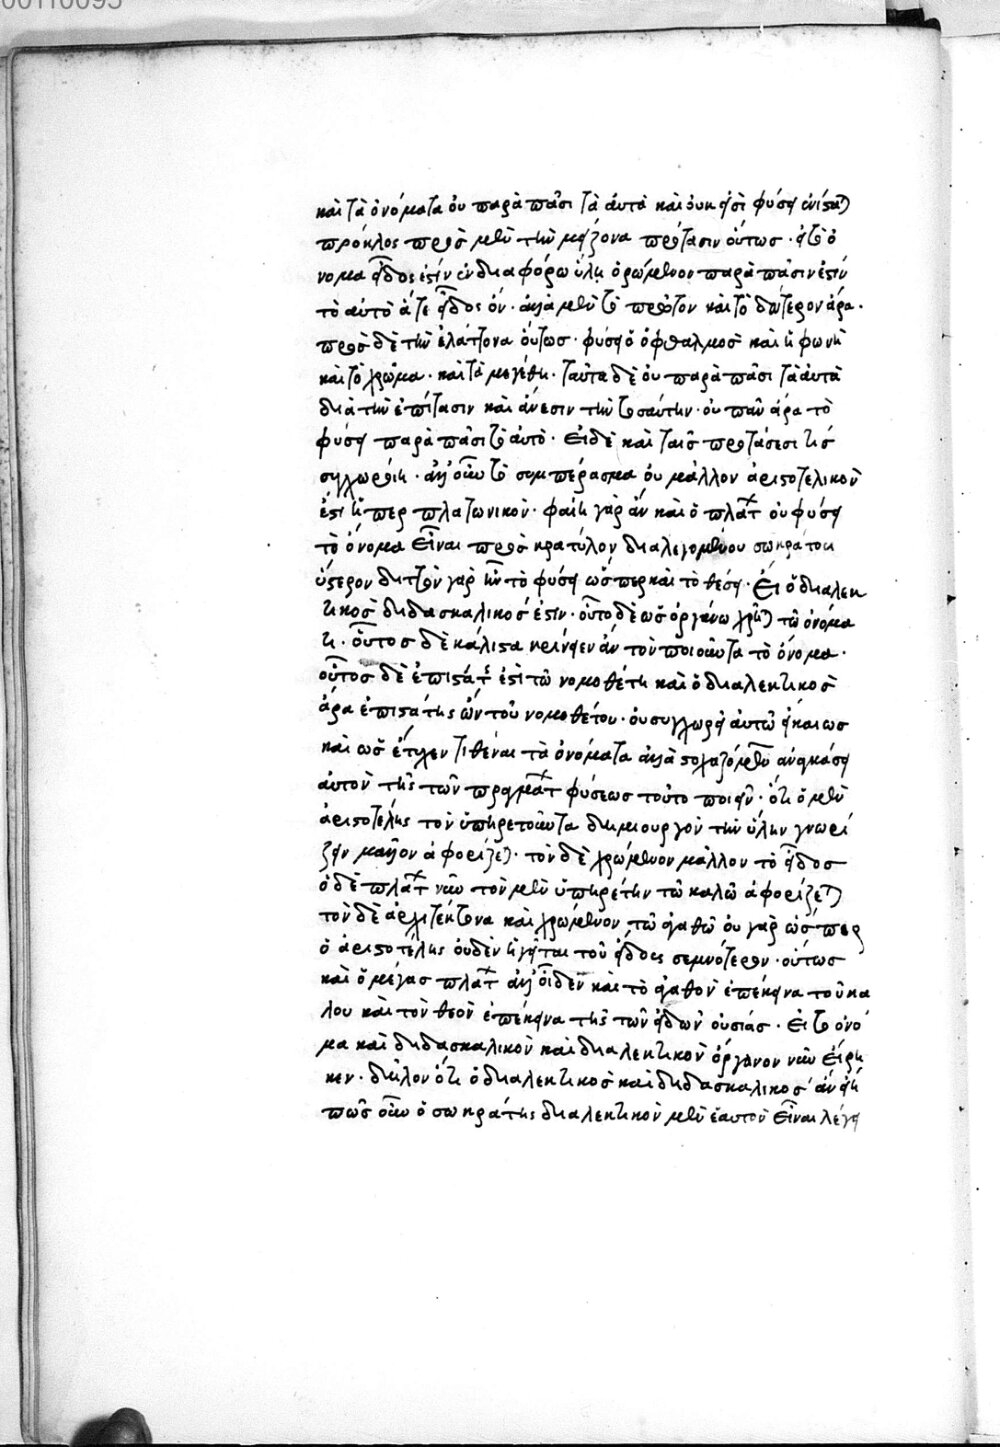 00110095
καὶ τὰ ὀνόματα οὐ παρὰ πᾶσι τὰ αὐτὰ καὶ οὐκ εἰσὶ φύσει ἐνίσταται
πρόκλος πρὸς μὲν τὴν μείζονα πρότασιν οὕτως · εἰ τὸ ὄ
νομα εἶδος ἐστὶν ἐν διαφόρω ὕλη ὁρώμενον παρὰ πᾶσιν ἐστὶν
τὸ αὐτὸ ἅτε εἶδος ὄν · ἀλλὰ μὲν τὸ πρῶτον καὶ τὸ δεύτερον ἄρα ·
πρὸς δὲ τὴν ἐλάττονα οὕτως · φύσει ὁ ὀφθαλμὸς καὶ ἡ φωνὴ
καὶ τὸ χρῶμα · καὶ τὰ μεγέθη · ταῦτα δὲ οὐ παρὰ πᾶσι τὰ αὐτὰ
διὰ τὴν ἐπίτασιν καὶ ἄνεσιν τὴν τοσαύτην · οὐ πᾶν ἄρα τὸ
φύσει παρὰ πᾶσι τὸ αὐτὸ · εἰ δὲ καὶ ταῖς προτάσεσι τίς
συγχωροίη · ἀλλ' οὖν τὸ συμπέρασμα οὐ μᾶλλον ἀριστοτελικὸν
ἐστὶ ἤπερ πλατωνικὸν · φαίη γὰρ ἂν καὶ ὁ πλάτ οὐ φύσει
τὸ ὄνομα εἶναι πρὸς κρατύλον διαλεγομένου σωκράτου
ὕστερον διττὸν γὰρ ἦν τὸ φύσει ὥσπερ καὶ τὸ θέσει · εἰ ὁ διαλεκ
τικὸς διδασκαλικός ἐστιν · οὗτο δὲ ὡς ὀργάνω χρῆται τῶ ὀνόμα
τι · οὗτος δὲ κάλιστα κρίνειεν ἂν τὸν ποιοῦντα τὸ ὄνομα ·
οὗτος δὲ ἐπιστάτ ἐστὶ τῶ νομοθέτη καὶ ὁ διαλεκτικὸς
ἄρα ἐπιστάτης ὢν τοῦ νομοθέτου · οὐ συγχωρεῖ αὐτῶ εἰκαίως
καὶ ὡς ἔτυχεν τιθέναι τὰ ὀνόματα ἀλλὰ στοχαζόμενον ἀναγκάσει
αὐτὸν τῆς τῶν πραγμάτ φύσεως τοῦτο ποιεῖν · ὅτι ὁ μὲν
ἀριστοτέλης τὸν ὑπηρετοῦντα δημιουργὸν τὴν ὕλην γνωρί
ζειν μᾶλλον ἀφορίζεται · τὸν δὲ χρώμενον μᾶλλον τὸ εἶδος
ὁ δὲ πλάτ νῦν τὸν μὲν ὑπηρέτην τῶ καλῶ ἀφορίζεται
τὸν δὲ ἀρχιτέκτονα καὶ χρώμενον τῶ ἀγαθῶ οὐ γὰρ ὥσπερ
ὁ ἀριστοτέλης οὐδὲν ἡγεῖται τοῦ εἴδους σεμνότερον · οὕτως
καὶ ὁ μέγας πλάτ ἀλλ' οἶδεν καὶ τὸ ἀγαθὸν ἐπέκεινα τοῦ κα
λοῦ καὶ τὸν θεὸν ἐπέκεινα τῆς τῶν εἰδῶν οὐσίας · εἰ τὸ ὄνο
μα καὶ διδασκαλικὸν καὶ διαλεκτικὸν ὄργανον νῦν εἴρη
κεν · δῆλον ὅτι ὁ διαλεκτικὸς καὶ διδασκαλικὸς ἂν εἴη
πῶς οὖν ὁ σωκράτης διαλεκτικὸν μὲν ἑαυτὸν εἶναι λέγει